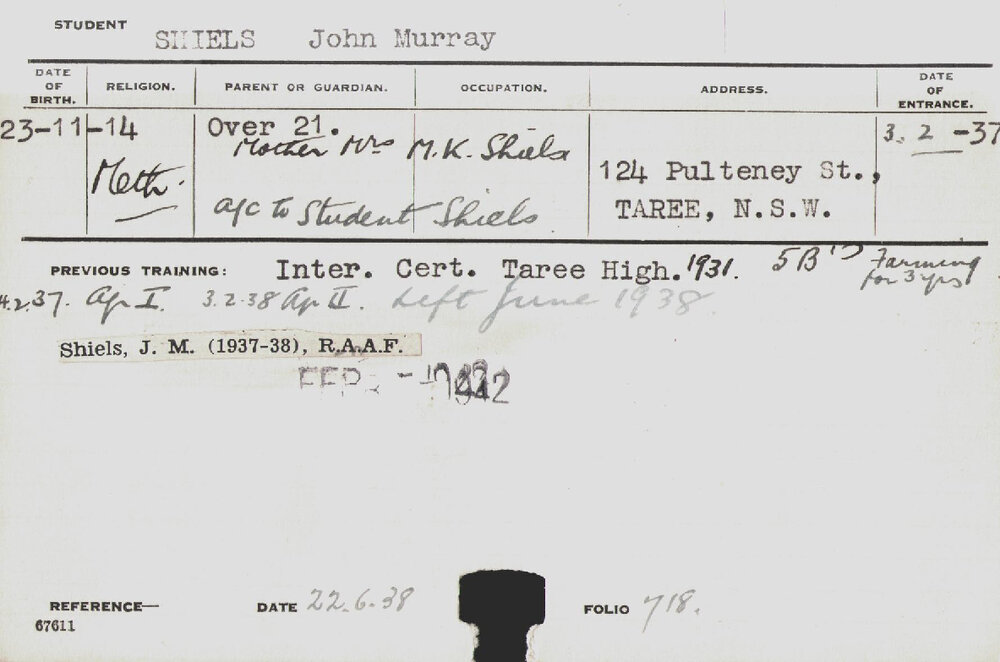 STUDENT SHIELS John Murray
DATE OF BIRTH. RELIGION. PARENT OR GUARDIAN. OCCUPATION. ADDRESS. DATE OF ENTRANCE.
23-11-14 Over 21. 3. 2 -37
Mother Mrs M.K. Shiels
Meth. 124 Pulteney St.,
a/c to Student Shiels TAREE, N.S.W.
PREVIOUS TRAINING: Inter. Cert. Taree High. 1931. 5B's Farming for 3 yrs
4.2.37. Ag I. 3.2.38 Ag II. Left June 1938.
Shiels, J. M. (1937-38), R.A.A.F.
1942
REFERENCE— DATE 22.6.38 FOLIO 718.
67611